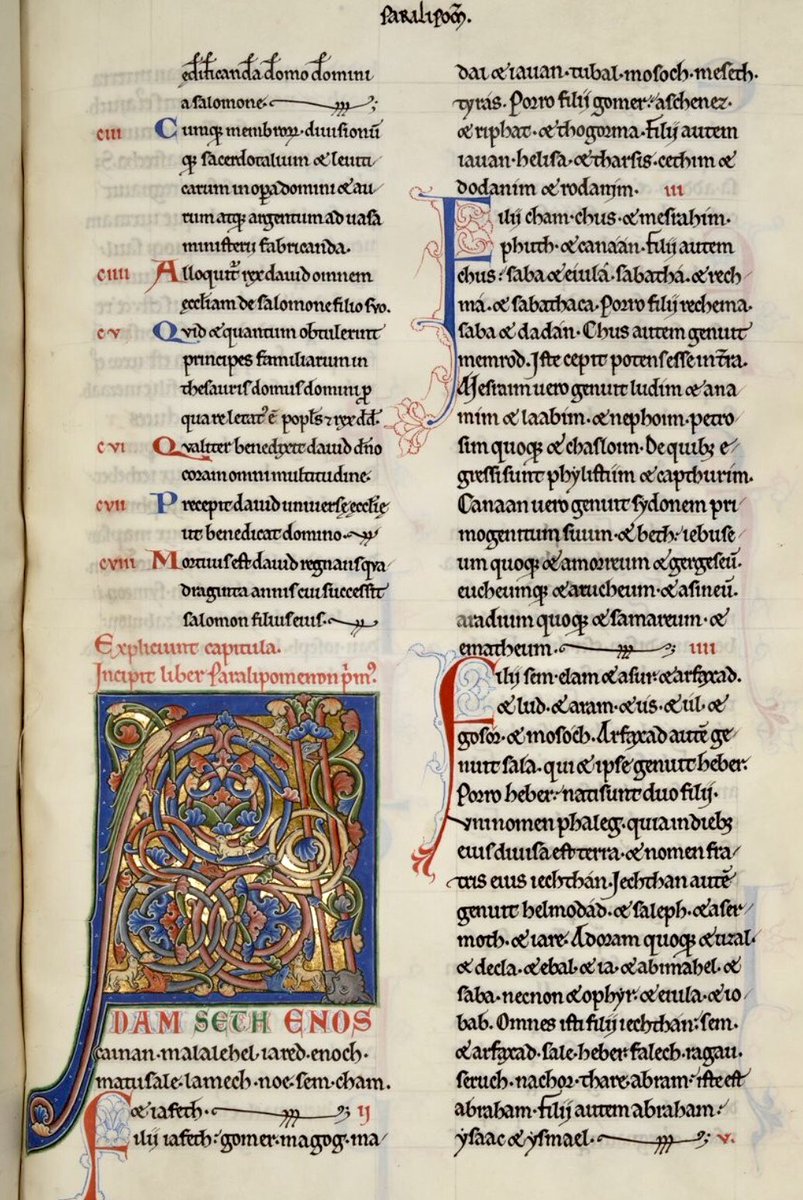 Paralipom̄.
ędificanda domo domini
a salomone.
ciii Cumq; membroꝝ diuisionū
q; sacerdotalium & leuiti/
carum in opa domini & au/
rum atq; argentum ad uasa
ministerii fabricanda.
ciiii Alloquit̄ rex dauid omnem
ęccl̄iam de salomone filio suo.
cv Quid & quantum obtulerunt
principes familiarum in
thesauris domus domini ꝑ
qua re letat᷒ ē popl̄s ⁊ rex dd̄.
cvi Qualiter benedixit dauid dn̄o
coram omni multitudine.
cvii Precepit dauid uniuersę ęcclię
ut benedicat domino.
cviii Mortuus est dauid regnans qua/
draginta annis cui successit
salomon filius eius.
Expliciunt capitula.
Incipit liber Paralipomenon p̄m᷒.
ADAM SETH ENOS
cainan. malalehel. iared. enoch.
matusale. lamech. noe. sem. cham.
& iafeth. ij
Filij iafeth: gomer. magog. ma/
dai & iauan. tubal. mosoch. mesech.
tyras. Porro filij gomer: aschenez.
& riphat. & thogorma. Filij autem
iauan. helisa. & tharsis. cethim &
dodanim & rodanim. iii
Filij cham. chus. & mesrahim.
phuth. & canaan. Filij autem
chus: saba & euilā. sabatha. & rech/
ma. & sabathaca. Porro filij rechema.
saba & dadan. Chus autem genuit
nemrod. Iste cepit potens esse in t̄ra.
Mesraim uero genuit ludim & ana/
mim & laabim. & nepthoim. petro/
sim quoq; & chasloim. De quib; e/
gressi sunt phylistiim & capthurim.
Canaan uero genuit sydonem pri/
mogenitum suum. & heth: iebuse/
um quoq; & amorreum & gergeseū.
eucheumq; & arucheum. & asineū.
aradium quoq; & samareum. &
ematheum. iiii
Filij sem. elam & asur. & arfaxad.
& lud. & aram. & us. & ul. &
gosor. & mosoch. Arfaxad autē ge/
nuit sala. qui & ipse genuit heber.
Porro heber: nati sunt duo filij.
uni nomen phaleg. quia in dieb;
eius diuisa est terra. & nomen fra/
tris eius iechthan. Jechthan autē
genuit helmodad. & saleph. & aser/
moth. & iare. Adoram quoq; & uzal.
& decla. & ebal. & ia. & abimahel. &
saba. necnon & ophyr. & euila. & io/
bab. Omnes isti filij iechthan: sem.
& arfaxad. sale. heber. falech. ragau.
seruch. nachor. thare. abram. iste est
abraham. Filij autem abraham:
ysaac & ysmael. v.